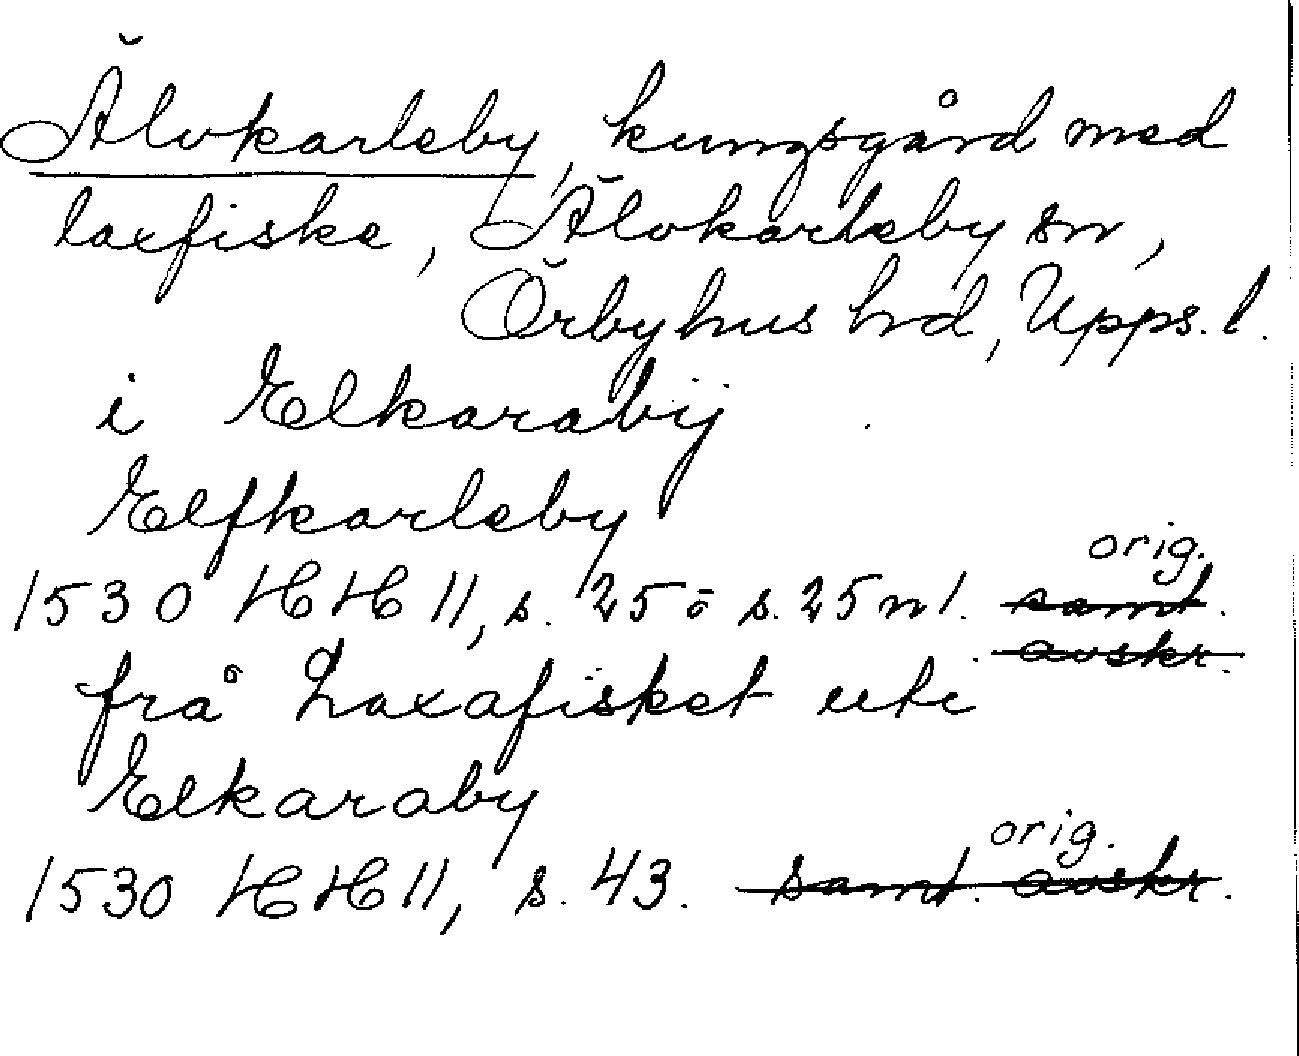 Älvkarleby, kungsgård med
laxfiske, Älvkarleby sn,
Örbyhus hd, Upps. l.
i Elkarabÿ
Elfkarleby
orig.
1530 HH 11, s. 25 o s. 25 n 1. samt.
avskr.
frå Laxafisket ute
Elkaraby
orig.
1530 HH 11, s. 43. samt. avskr.